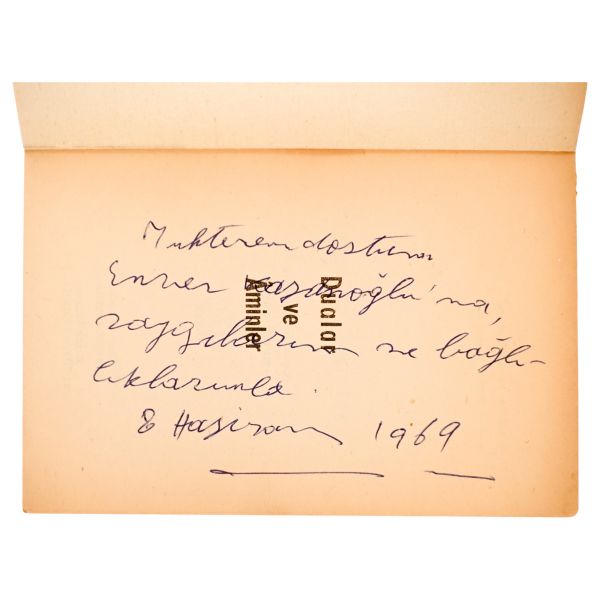 Muhterem dostum
Enver Kazanoğlu'na,
saygılarım ve bağlı-
lıklarımla.
8 Haziran 1969
Dualar
ve
Âminler